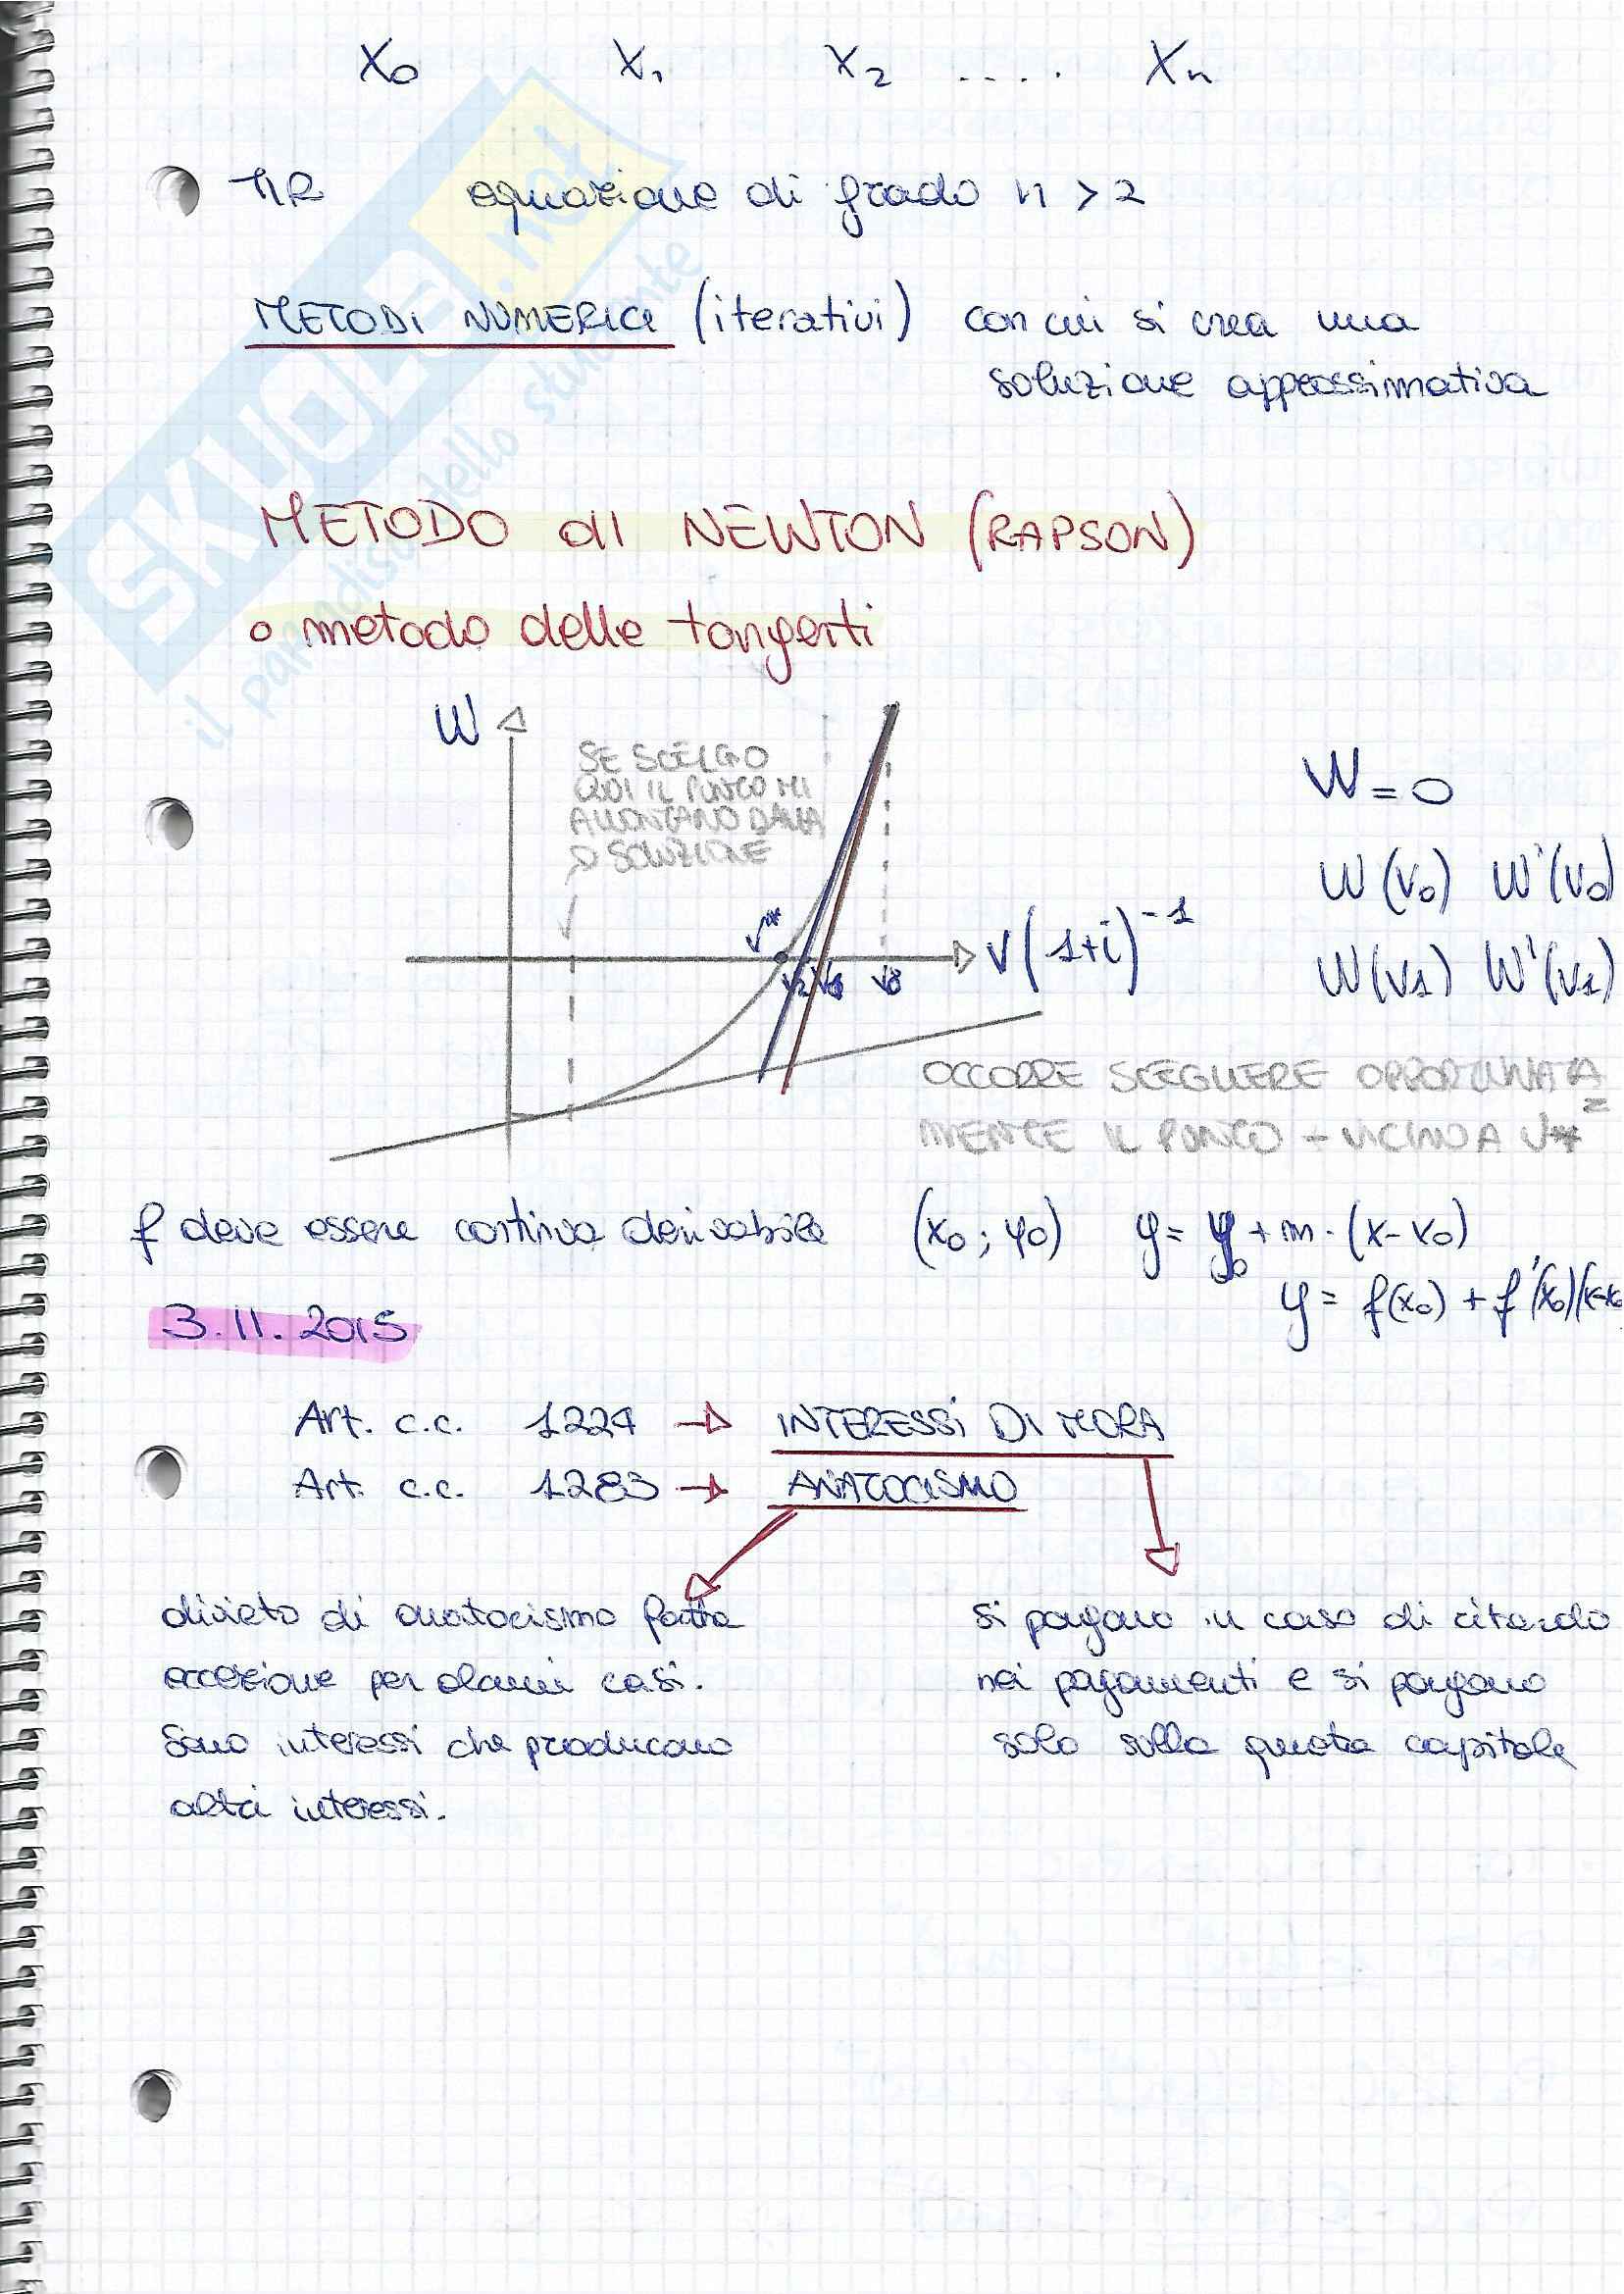 x₀ x₁ x₂ .... xₙ
TIR equazione di grado n > 2
METODI NUMERICI (iterativi) con cui si crea una
soluzione approssimativa
METODO di NEWTON (RAPSON)
o metodo delle tangenti
W
SE SCELGO
QUI IL PUNTO MI
ALLONTANO DALLA
SOLUZIONE
W = 0
W(v₀) W'(v₀)
v* v(1+i)⁻¹
v₂ v₁ v₀
W(v₁) W'(v₁)
OCCORRE SCEGLIERE OPPORTUNATA
MENTE IL PUNTO + VICINO A V*
f deve essere continua derivabile (x₀; y₀) y = y₀ + m · (x - x₀)
y = f(x₀) + f'(x₀)(x-x₀
3.11.2015
Art. c.c. 1224 → INTERESSI DI MORA
Art. c.c. 1283 → ANATOCISMO
divieto di anatocismo fatta
eccezione per alcuni casi.
Sono interessi che producono
altri interessi.
si pagano in caso di ritardo
nei pagamenti e si pagano
solo sulla quota capitale
SKUOLA.net
il paradiso dello studente